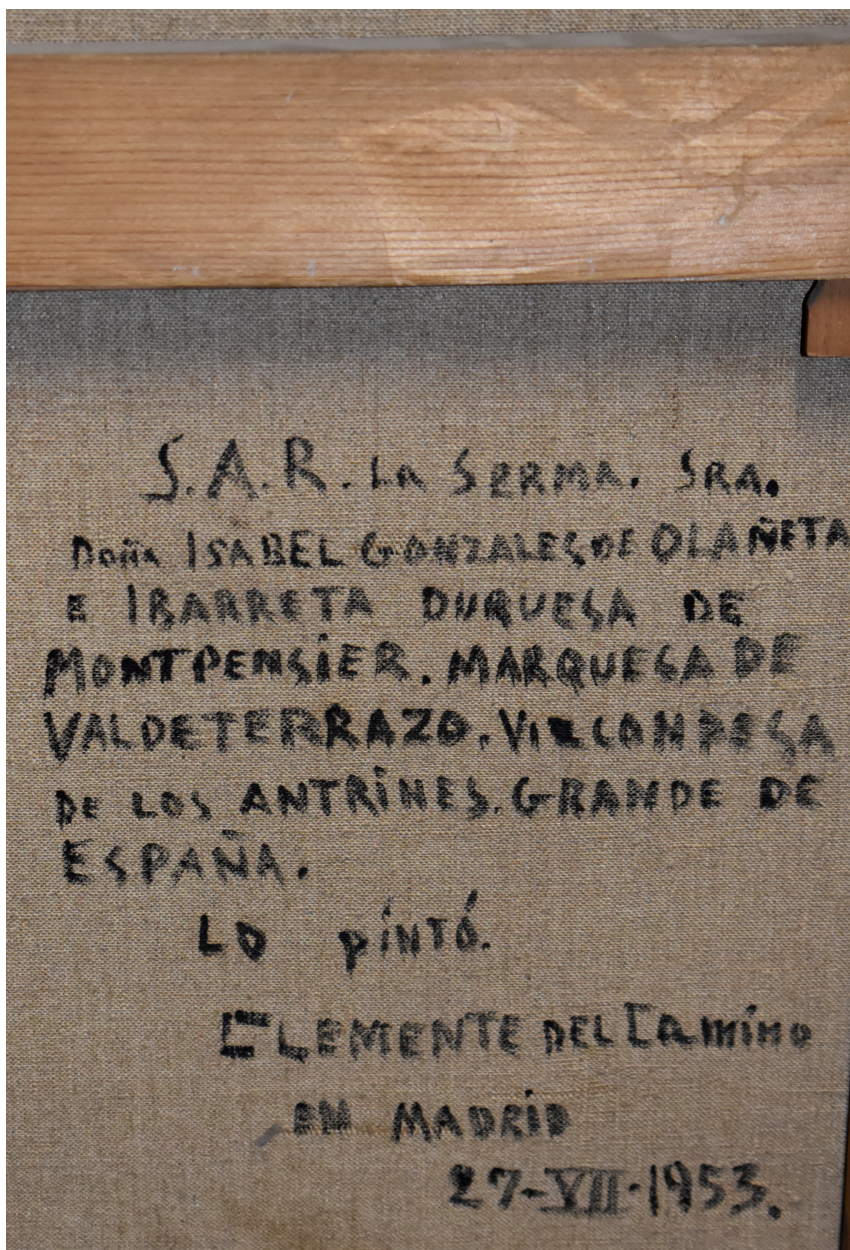 S.A.R. La SERMA. SRA.
Doña ISABEL GONZALES DE OLAÑETA
E IBARRETA DUQUESA DE
MONTPENSiER. MARQUESA DE
VALDETERRAZO. VIZCONDESA
DE LOS ANTRiNES. GRANDE DE
ESPAÑA.
LO píNTÓ.
CLEMENTE DEL Camíno
EN MADRiD
27-VII-1953.